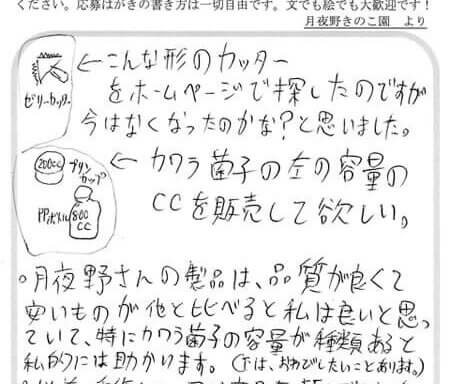 ください。応募はがきの書き方は一切自由です。文でも絵でも大歓迎です！
月夜野きのこ園　より
ゼリーカッター
←こんな形のカッター
をホームページで探したのですが
今はなくなったのかな？と思いました。
200cc
プリンカップ
PPボトル
800cc
←カワラ菌子の左の容量の
CCを販売して欲しい。
。月夜野さんの製品は、品質が良くて
安いものが他と比べると私は良いと思っ
ていて、特にカワラ菌子の容量が種類あると
私的には助かります。（下は、おわびしたいことあります。）